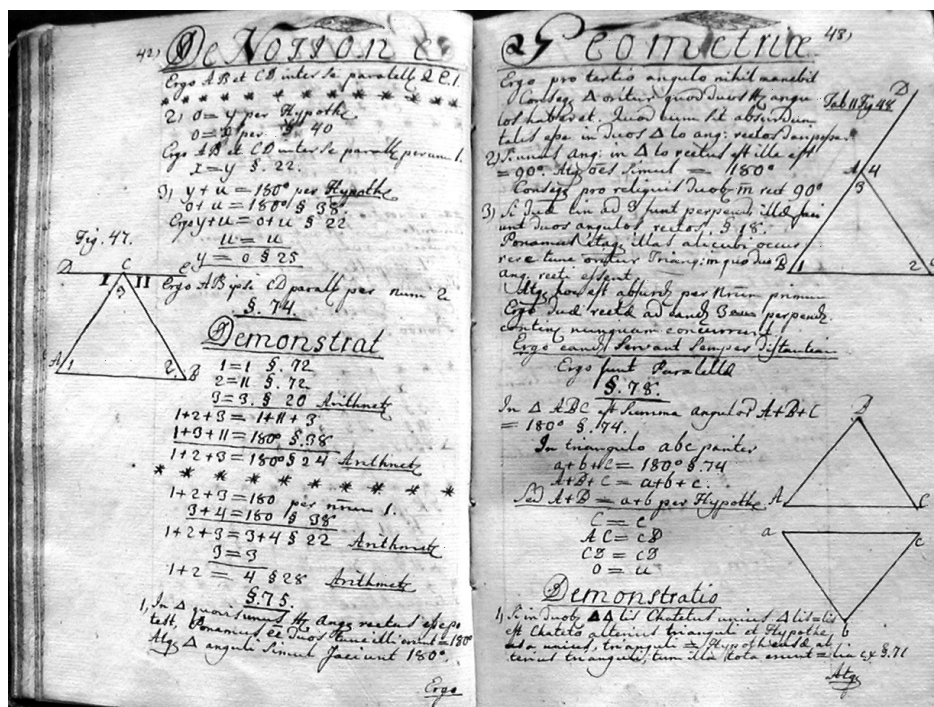 42)
De Notione
Ergo AB et CD inter se parallelæ Q.E.1.
2) o = y per Hypothe
o = x per § 40
Ergo AB et CD inter se parall per num 1.
x = y §. 22.
3) y + u = 180° per Hypothe
o + u = 180° § 38
Ergo y + u = o + u § 22
u = u
y = o § 25
Ergo AB ipsi CD parall per num 2
§. 74.
Demonstrat
1 = 1 §. 72
2 = II §. 72
3 = 3. §. 20 Arithmet
1 + 2 + 3 = I + II + 3
I + 3 + II = 180° §. 38
1 + 2 + 3 = 180° § 24 Arithmet
1 + 2 + 3 = 180 per num 1.
3 + 4 = 180 § 38
1 + 2 + 3 = 3 + 4 § 22 Arithmet
3 = 3
1 + 2 = 4 § 28 Arithmet
§. 75.
1, In Δ quovis unus Angs rectus esse po
test, Ponamus duos tunc illi erunt = 180°
Atq Δ anguli simul faciunt 180°.
Ergo
Fig. 47.
D C E
I II
3
A 1 2 B
Geometriæ
43)
Ergo pro tertio angulo nihil manebit
Conseq Δ oritur quod duos angu
los haberet. Quod cum sit absurdum
talis esse in duos Δ lo ang: rectos
2) Si unus ang: in Δ lo rectus est illa est
= 90°. Atq oes simul = 180°
Conseq pro reliquis duob: m rect 90°
3) Si duæ lin ad 3 sunt perpend illæ faci
unt duos angulos rectos, § 18.
Ponamus itaq illas alicubi occur
rere tunc oritur Triang: in quo duo
ang. recti essent
Atq hoc est absurd per Num primum
Ergo duæ rectæ ad eand 3 perpend.
contin nunquam concurrunt
Ergo eand servant semper distantiam
Ergo sunt Parallelæ
§. 78.
In Δ ABC est Summa angulor A+B+C
= 180° §. 174.
In triangulo abc pariter
a + b + c = 180° §. 74
A + B + C = a + b + c.
Sed A + B = a + b per Hypothe
C = c
AC = cB
CB = cB
o = u
Demonstratio
1, Si in duob ΔΔ lis Chatetus unius Δ lis = lis
est Chateto alterius trianguli et Hypothe
usa, unius, trianguli = Hypotheusæ al
terius trianguli, tum illa tota erunt = lia ex §. 71
Atq
Tab II Fig 48
D
A 4
3
B 1 2 C
B
A C
a c
b